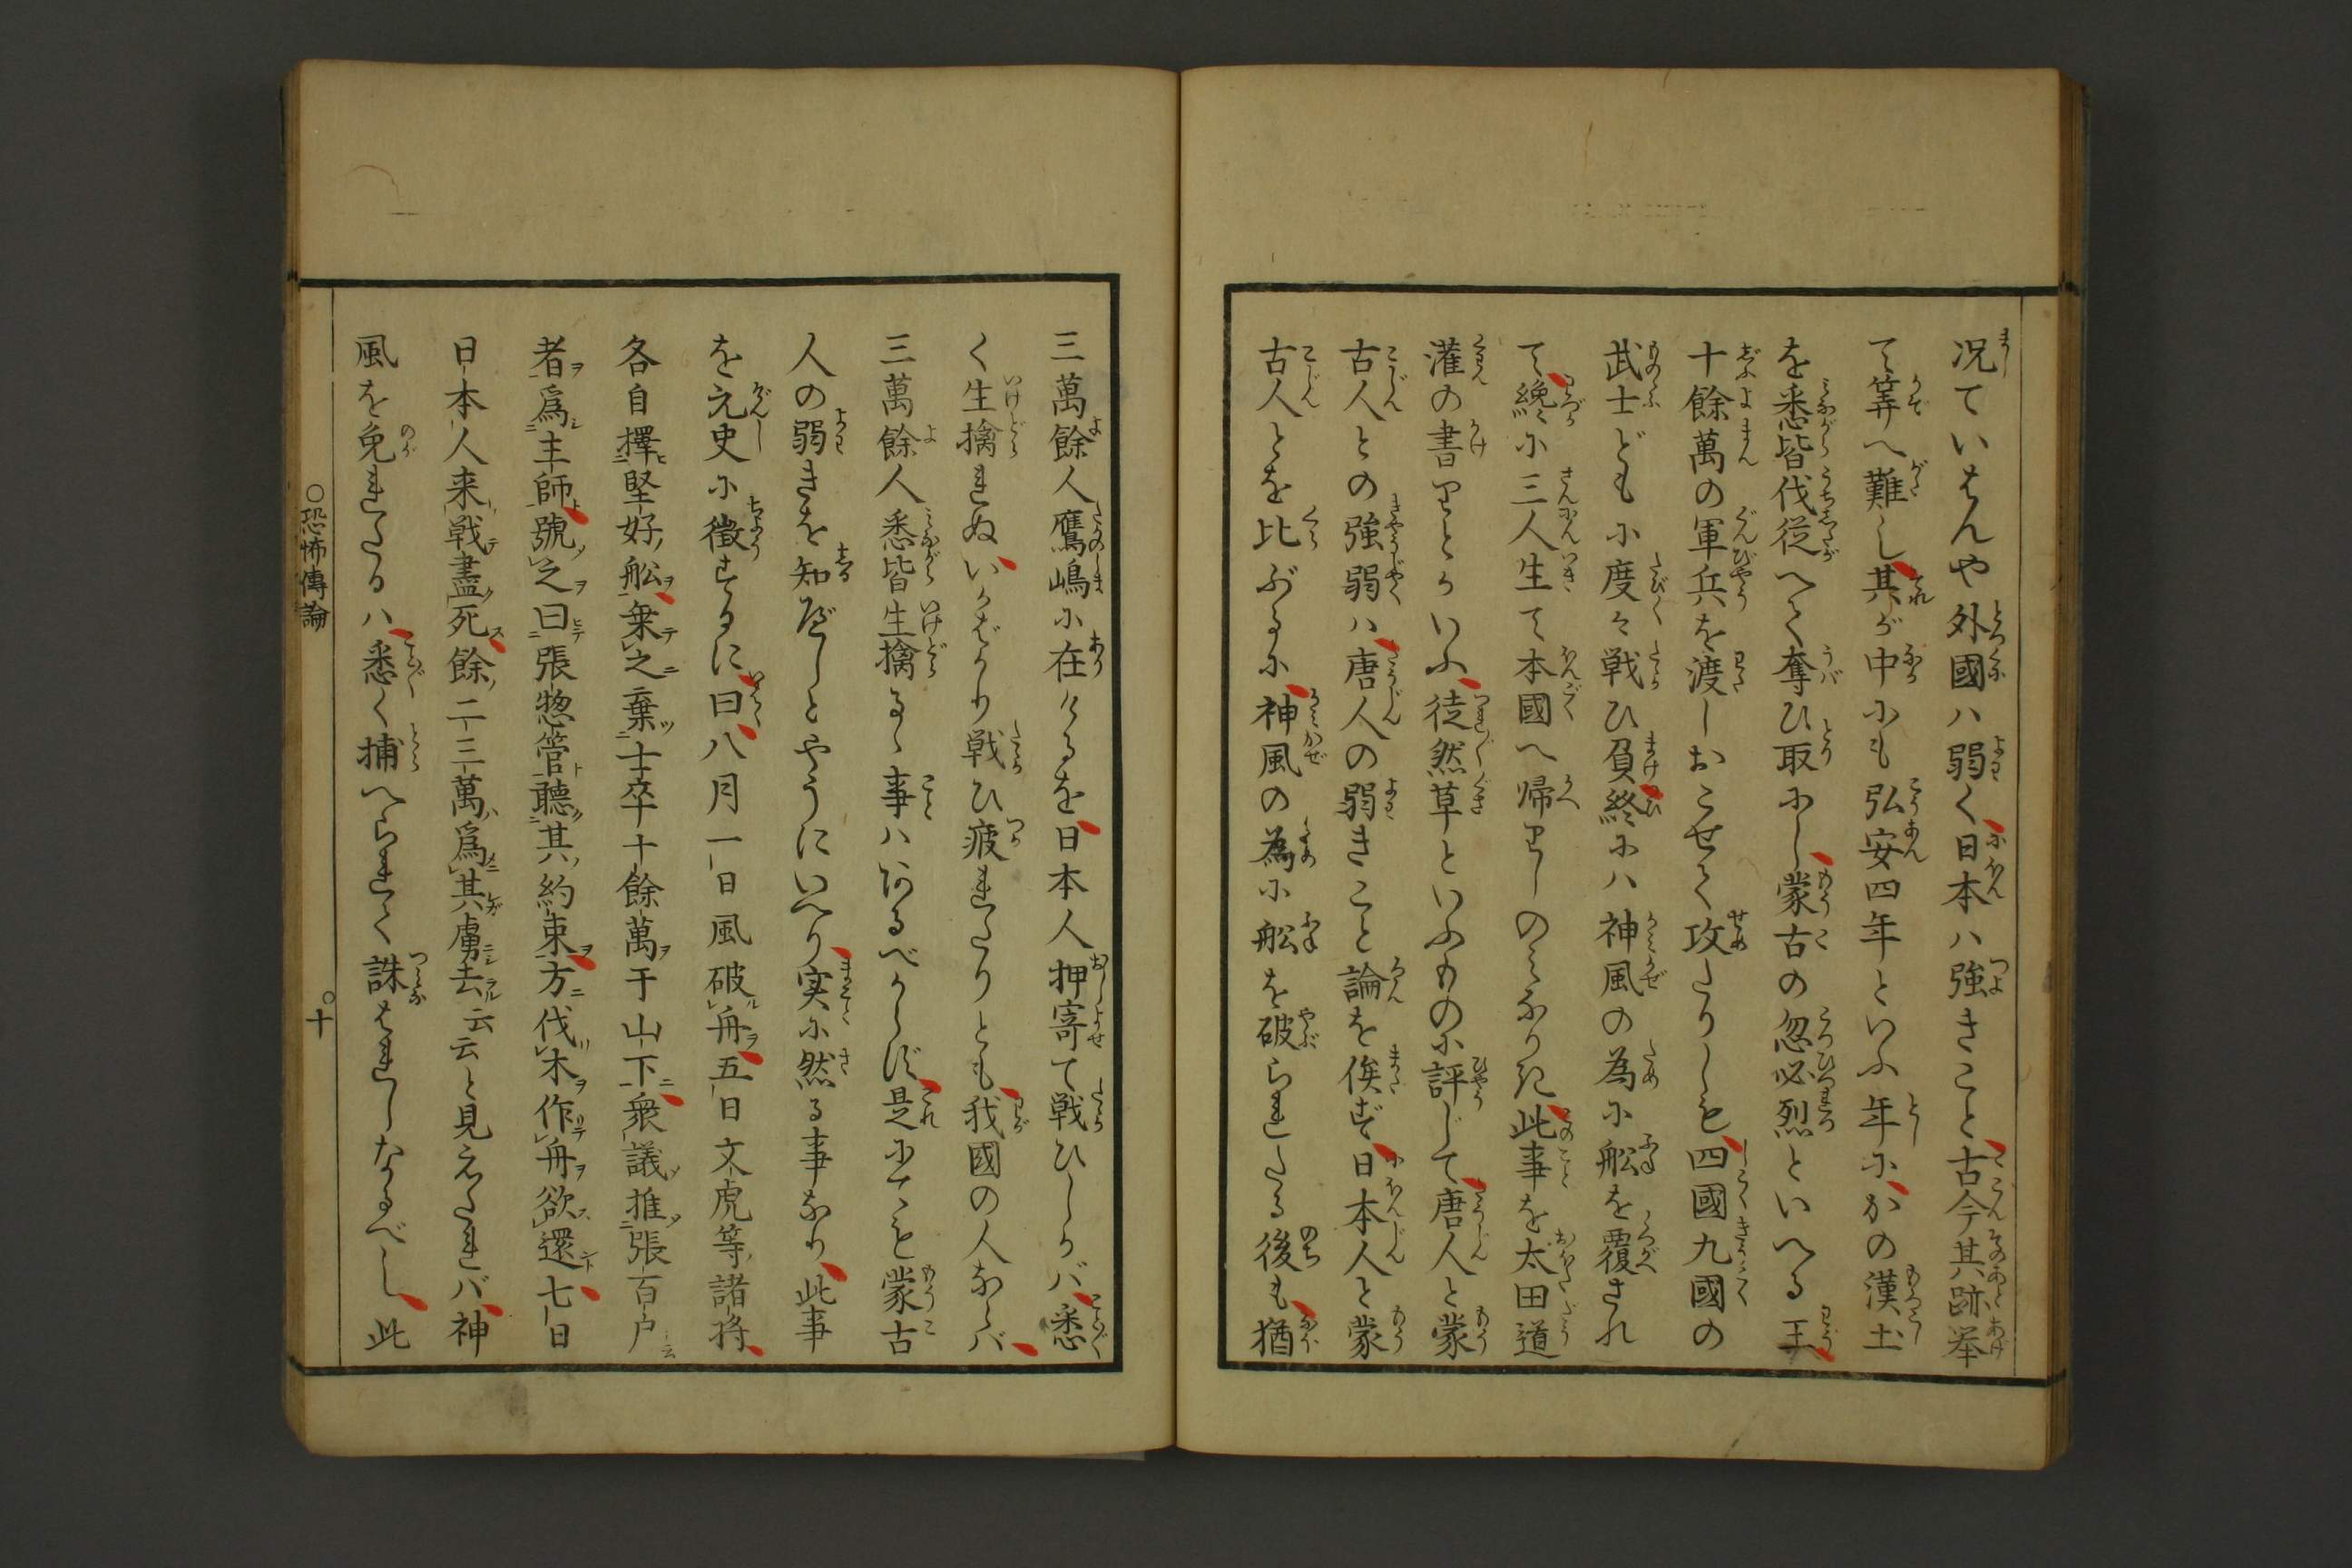 況ていはんや外國ハ弱く日本ハ強きこと古今其跡挙
て筭へ難し其が中にも弘安四年といふ年にかの漢土
を悉皆伐従へて奪ひ取にし蒙古の忽必烈といへる王
十餘萬の軍兵を渡しおこせて攻たりしを四國九國の
武士どもに度々戦ひ負終にハ神風の為に舩を覆され
て纔に三人生て本國へ帰りしのみなりき此事を太田道
灌の書りとかいふ徒然草といふものに評じて唐人と蒙
古人との強弱ハ唐人の弱きこと論を俟ず日本人と蒙
古人とを比ぶるに神風の為に舩を破られたる後も猶
三萬餘人鷹嶋に在けるを日本人押寄て戦ひしかバ悉
く生擒れぬいかばかり戦ひ疲れたりとも我國の人ならバ
三萬餘人悉皆生擒るゝ事ハあるべからず是にても蒙古
人の弱きを知べしとやうにいへり実に然る事なり此事
を元史に徴するに曰八月一日風破舟五日文虎等諸将
各自擇堅好舩乗之棄士卒十餘萬于山下衆議推張百戸
者爲主師號之曰張惣管聽其約束方伐木作舟欲還七日
日本人来戦盡死餘二三萬爲其虜去云云と見えたれバ神
風を免れたるハ悉く捕へられて誅はれしなるべし此
○恐怖傳論
○十